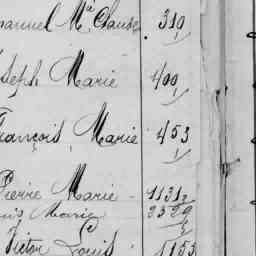 anuel Mie Claude 310
seph Marie 400
rançois Marie 453
Pierre Marie 1131
uis Marie 2329
Victor Louis 1153